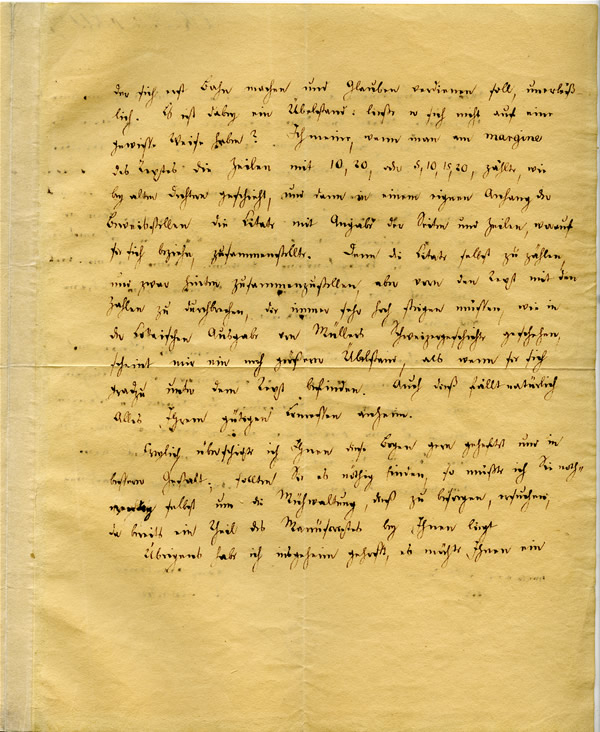 der sich erst Bahn machen und Glauben verdienen soll, unerläß-
lich. Es ist dabey ein Übelstand: ließe er sich nicht auf eine
gewisse Weise heben? Ich meine, wenn man am margine
des Textes die Zeilen mit 10, 20, oder 5, 10, 15, 20, zählte, wie
bey alten Dichtern geschieht, und dann in einem eignen Anhang der
Beweisstellen die Citate mit Angabe der Seiten und Zeilen, worauf
sie sich beziehn, zusammenstellte. Denn die Citate selbst zu zählen,
und zwar hinten zusammenzustellen, aber vorn den Text mit den
Zahlen zu durchbrechen, die immer sehr hoch steigen müssen, wie in
der Ausgabe von Müllers Schweizergeschichte geschehen,
scheint mir ein noch größrer Übelstand, als wenn sie sich
gradezu unter dem Text befinden. Auch dieß fällt natürlich
Alles Ihrem gütigen Ermessen anheim.
Freylich überschickte ich Ihnen diese Bogen gern geheftet und in
besserer Gestalt; sollten Sie es nöthig finden, so müßte ich Sie noth-
selbst um die Mühwaltung, dieß zu besorgen, ersuchen,
da bereits ein Theil des Manuscriptes bey Ihnen liegt
Übrigens habe ich insgeheim gehofft, es möchte Ihnen ein